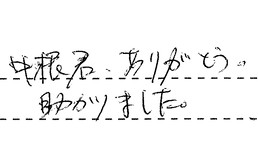 中根君、ありがとう。
助かりました。